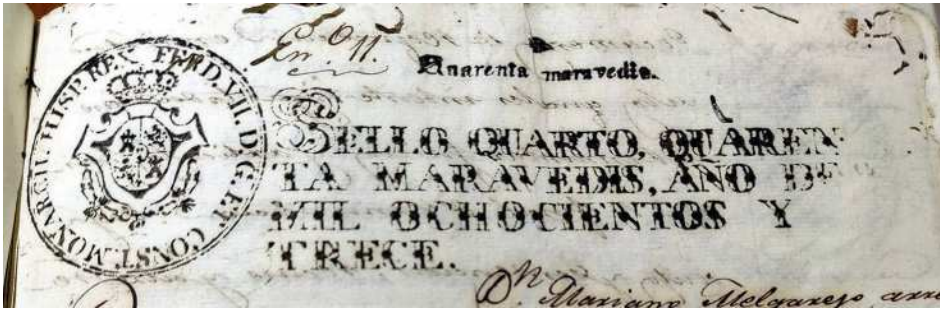 FERD. VII. D. G. ET CONST. MONARCH. HISP. REX.
En.º 11.
Quarenta maravedis.
SELLO QUARTO, QUAREN-
TA MARAVEDIS, AÑO DE
MIL OCHOCIENTOS Y
TRECE.
Dn. Mariano Melgarejo